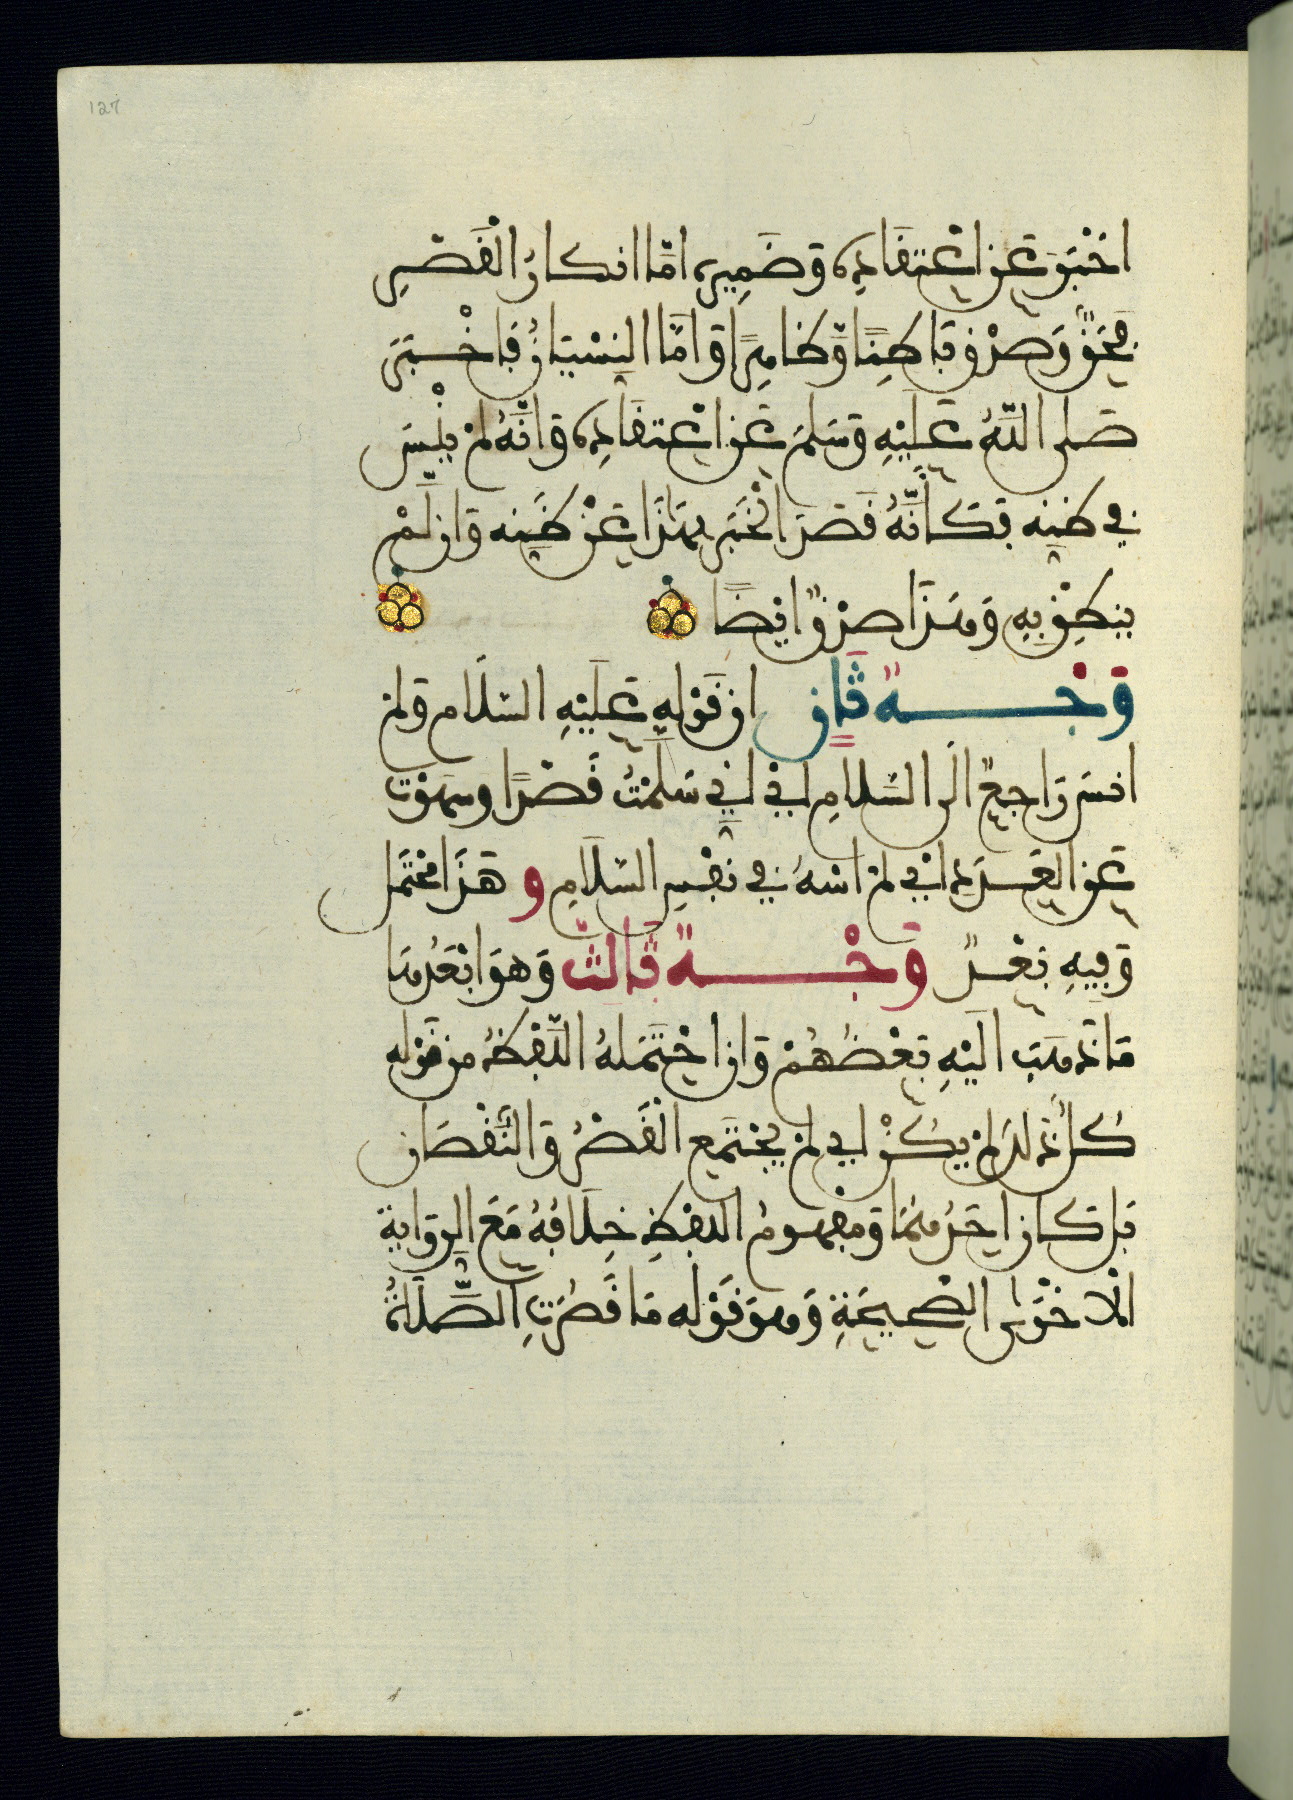 127
اخْبَرَ عَنِ اعْتِقَادِهِ وَضَمِيرِهِ امَّا انكارُ الْقَصْرِ
فَحَقٌّ وَصِدْقٌ بَاطِنًا وَظَاهِرًا وَامَّا النِّسْيَانُ فَاخْبَرَ
صَلى اللّهُ عَلَيْهِ وَسَلمَ عَنِ اعْتِقَادِهِ وَانَّهُ لَمْ يَنْسَ
فِي ظَنِّهِ فَكَأَنَّهُ قَصَدَ الْخَبَرَ بِهَذَا عَنْ ظَنِّهِ وَان لَّمْ
يَنطِقْ بِهِ وَهَذَا صِدْقٌ ايْضًا
وَجْهٌ ثَانٍ ان قَوْلَهُ عَلَيْهِ السَّلَام وَلَمْ
انسَ رَاجِعٌ الَى السَّلَامِ ايْ انِّي سَلَّمْتُ قَصْدًا وسَهَوْتُ
عَنِ العَدَدِ ايْ لَمْ اسْهُ فِي نَفْسِ السَّلَامِ وَهَذَا مُحْتَمَل
وَفِيهِ بُعْدٌ وَجْهٌ ثَالِثٌ وَهوَ ابْعَدُهَا
مَا ذَهَبَ الَيْهِ بَعْضُهُمْ وَانِ احْتَمَلَهُ اللَّفْظُ مِن قَوْلِهِ
كُلُّ ذَلِكَ لَمْ يَكُنْ اي لَمْ يَجْتَمِعِ الْقَصْرُ وَالنُّقْصَان
بَل كَانَ احَدُهُمَا وَمَفْهُومُ اللَّفْظِ خِلَافُهُ مَعَ الرِّوَايَةِ
الْاخْرَى الصَّحِيحَةِ وَهوَ قَوْلُه مَا قَصُرَتِ الصَّلَاةُ